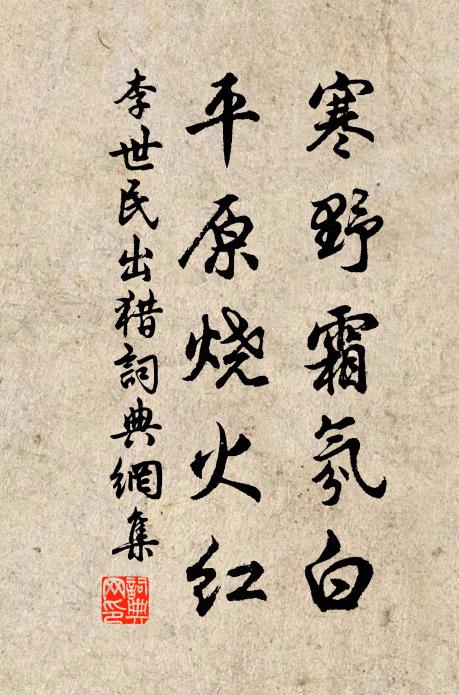 寒野霜氛白
平原烧火红
李世民出猎詞典網集
詞典网印